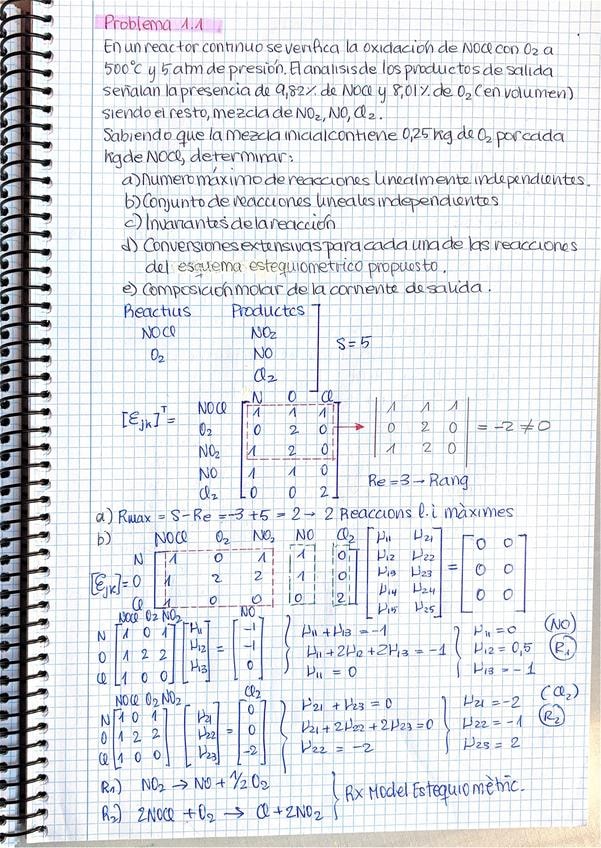 Problema 1.1
En un reactor continuo se verifica la oxidación de NOCl con O₂ a
500ºC y 5 atm de presión. El analisis de los productos de salida
señalan la presencia de 9,82% de NOCl y 8,01% de O₂ (en volumen)
siendo el resto, mezcla de NO₂, NO, Cl₂.
Sabiendo que la mezcla inicial contiene 0,25 kg de O₂ por cada
kg de NOCl, determinar:
a) Numero máximo de reacciones linealmente independientes.
b) Conjunto de reacciones lineales independientes
c) Invariantes de la reacción
d) Conversiones extensivas para cada una de las reacciones
del esquema estequiometrico propuesto.
e) Composición molar de la corriente de salida.
Reactius Productes
NOCl NO₂
O₂ NO S=5
Cl₂
N O Cl
[Ejk]ᵀ= NOCl 1 1 1
O₂ 0 2 0
NO₂ 1 2 0
NO 1 1 0
Cl₂ 0 0 2
1 1 1
0 2 0 = -2 ≠ 0
1 2 0
Re = 3 → Rang
a) Rmax = S-Re = -3+5 = 2 → 2 Reaccions l.i màximes
b) NOCl O₂ NO₂ NO Cl₂
N 1 0 1 1 0 μ11 μ21 0 0
[Ejk]= O 1 2 2 1 0 μ12 μ22 = 0 0
Cl 1 0 0 0 2 μ13 μ23 0 0
μ14 μ24
μ15 μ25
NOCl O₂ NO₂ NO
N 1 0 1 μ11 -1 μ11 + μ13 = -1 μ11 = 0 (NO)
O 1 2 2 μ12 = -1 μ11 + 2μ12 + 2μ13 = -1 μ12 = 0,5 R₁
Cl 1 0 0 μ13 0 μ11 = 0 μ13 = -1
NOCl O₂ NO₂ Cl₂
N 1 0 1 μ21 0 μ21 + μ23 = 0 μ21 = -2 (Cl₂)
O 1 2 2 μ22 = 0 μ21 + 2μ22 + 2μ23 = 0 μ22 = -1 R₂
Cl 1 0 0 μ23 -2 μ22 = -2 μ23 = 2
R₁) NO₂ → NO + ½ O₂
R₂) 2NOCl + O₂ → Cl + 2NO₂
Rx Model Estequiomètric.